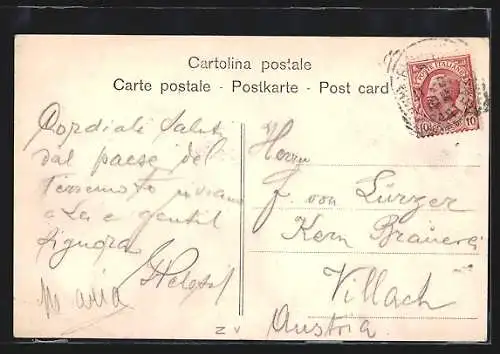 Cartolina postale
Carte postale - Postkarte - Post card
Cordiali saluti
dal paese del
Terremoto inviamo
a Lei e gentil
Signora
Maria
Herrn
F. von Lürzer
Kern Brauerei
Villach
Austria
POSTE ITALIANE
10 10
Z V